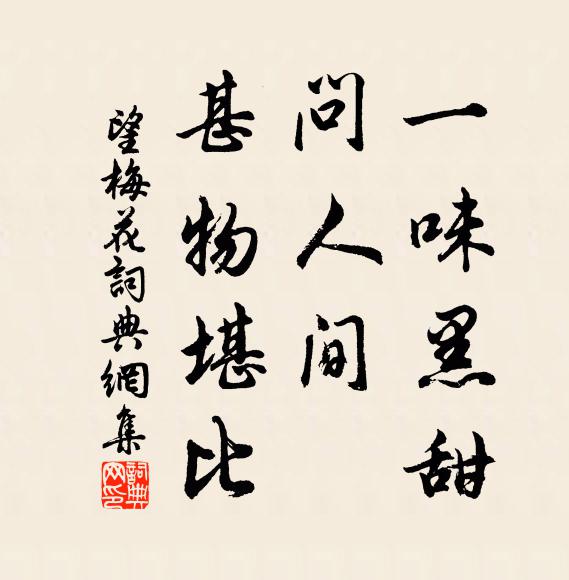 一味黑甜
問人间
甚物堪比
望梅花詞典網集
詞典
网印